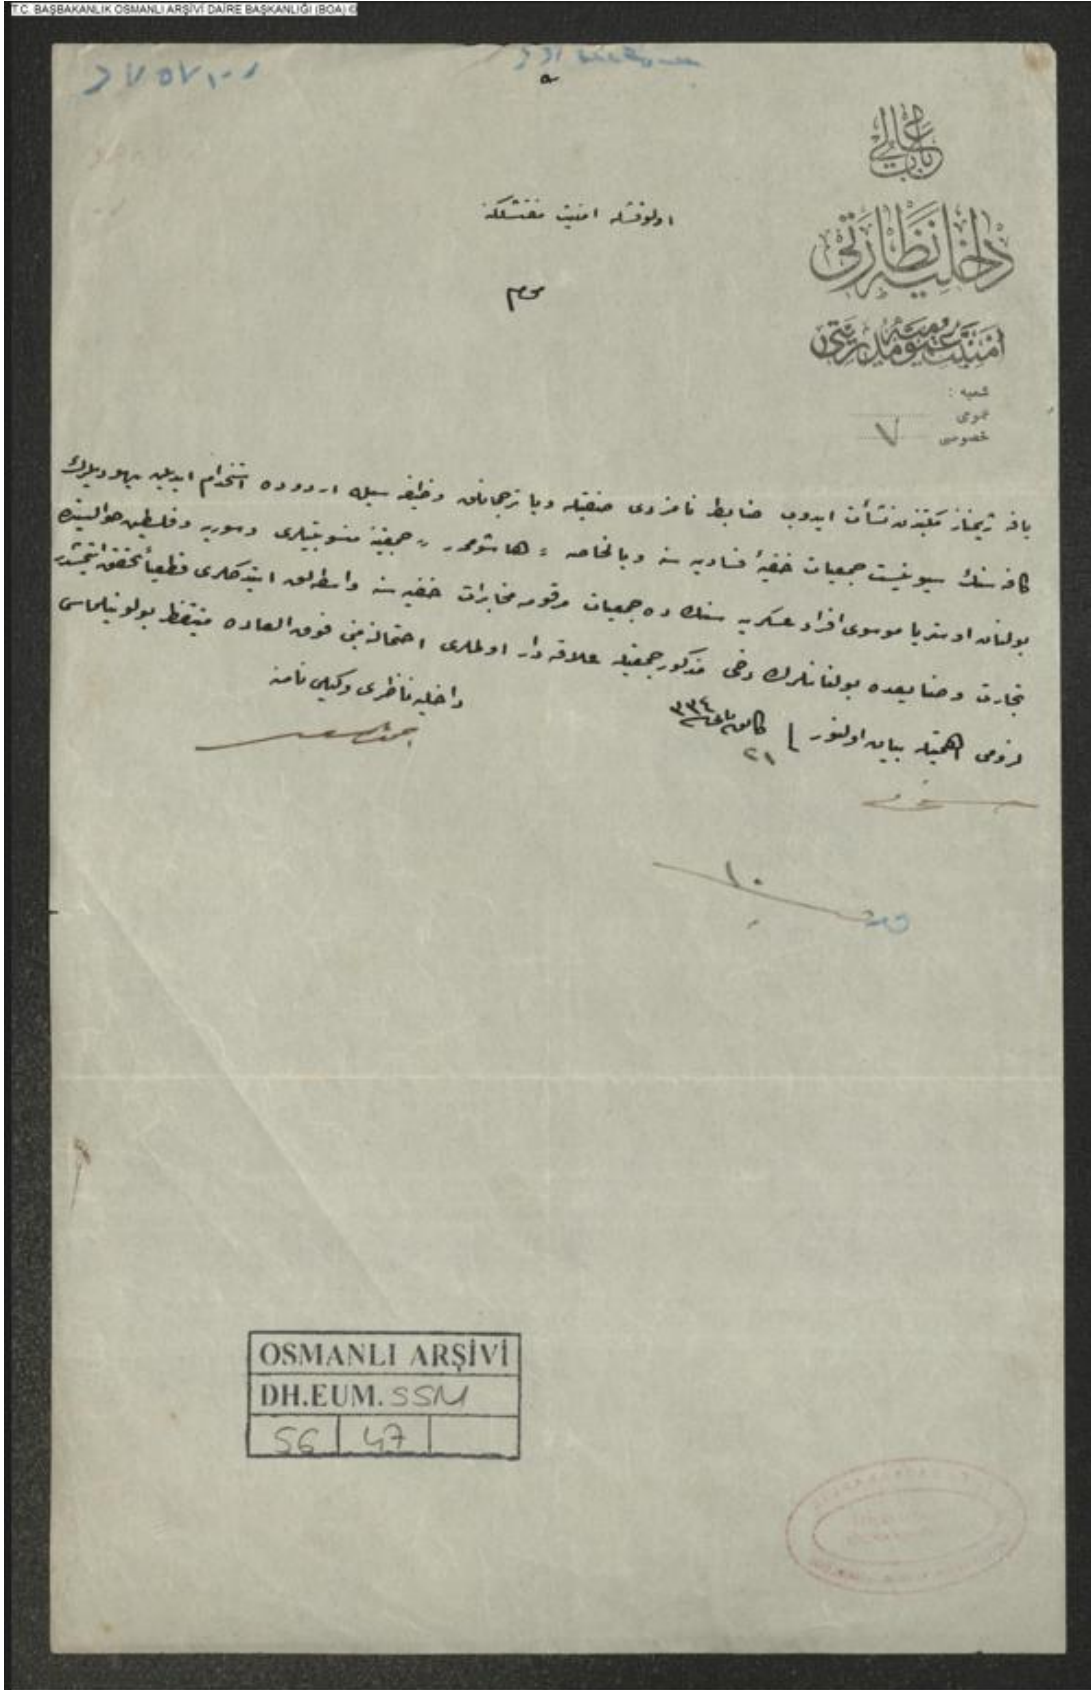 T.C. BAŞBAKANLIK OSMANLI ARŞİVİ DAİRE BAŞKANLIĞI (BOA) ©
باب عالی
داخلیه نظارتی
امنیت عمومیه مدیریتی
شعبه :
عمومی
خصوصی ٧
اولوقشله امنیت مفتشلكنه
محرم
یافه ژیمناز مكتبندن نشأت ایدوب ضابط نامزدی صفتیله ویا ترجمانلق وظیفه سیله اردوده استخدام ایدیلن یهودیلرك
كافه سنك سیونیست جمعیات خفیهٔ فسادیه سنه وبالخاصه " هاشومر " جمعیتنه منسوبیتلری وسوریه وفلسطین حوالیسنده
بولنان اوستریا موسوی افراد عسكریه سنك ده جمعیات مرقومه مخابرات خفیه سنه واسطه لق ایتدكلری قطعیاً تحقق ایتمشدر
تجارت وصنایعده بولنانلرك دخی مذكور جمعیتله علاقه دار اولملری احتمالنه مبنی فوق العاده متیقظ بولونیلماسی
لزومی اهمیتله بیان اولنور كانون ثانی ٣٣٤
٢١
داخلیه ناظری وكیلی نامنه
OSMANLI ARŞİVİ
DH.EUM. SSM
56 47